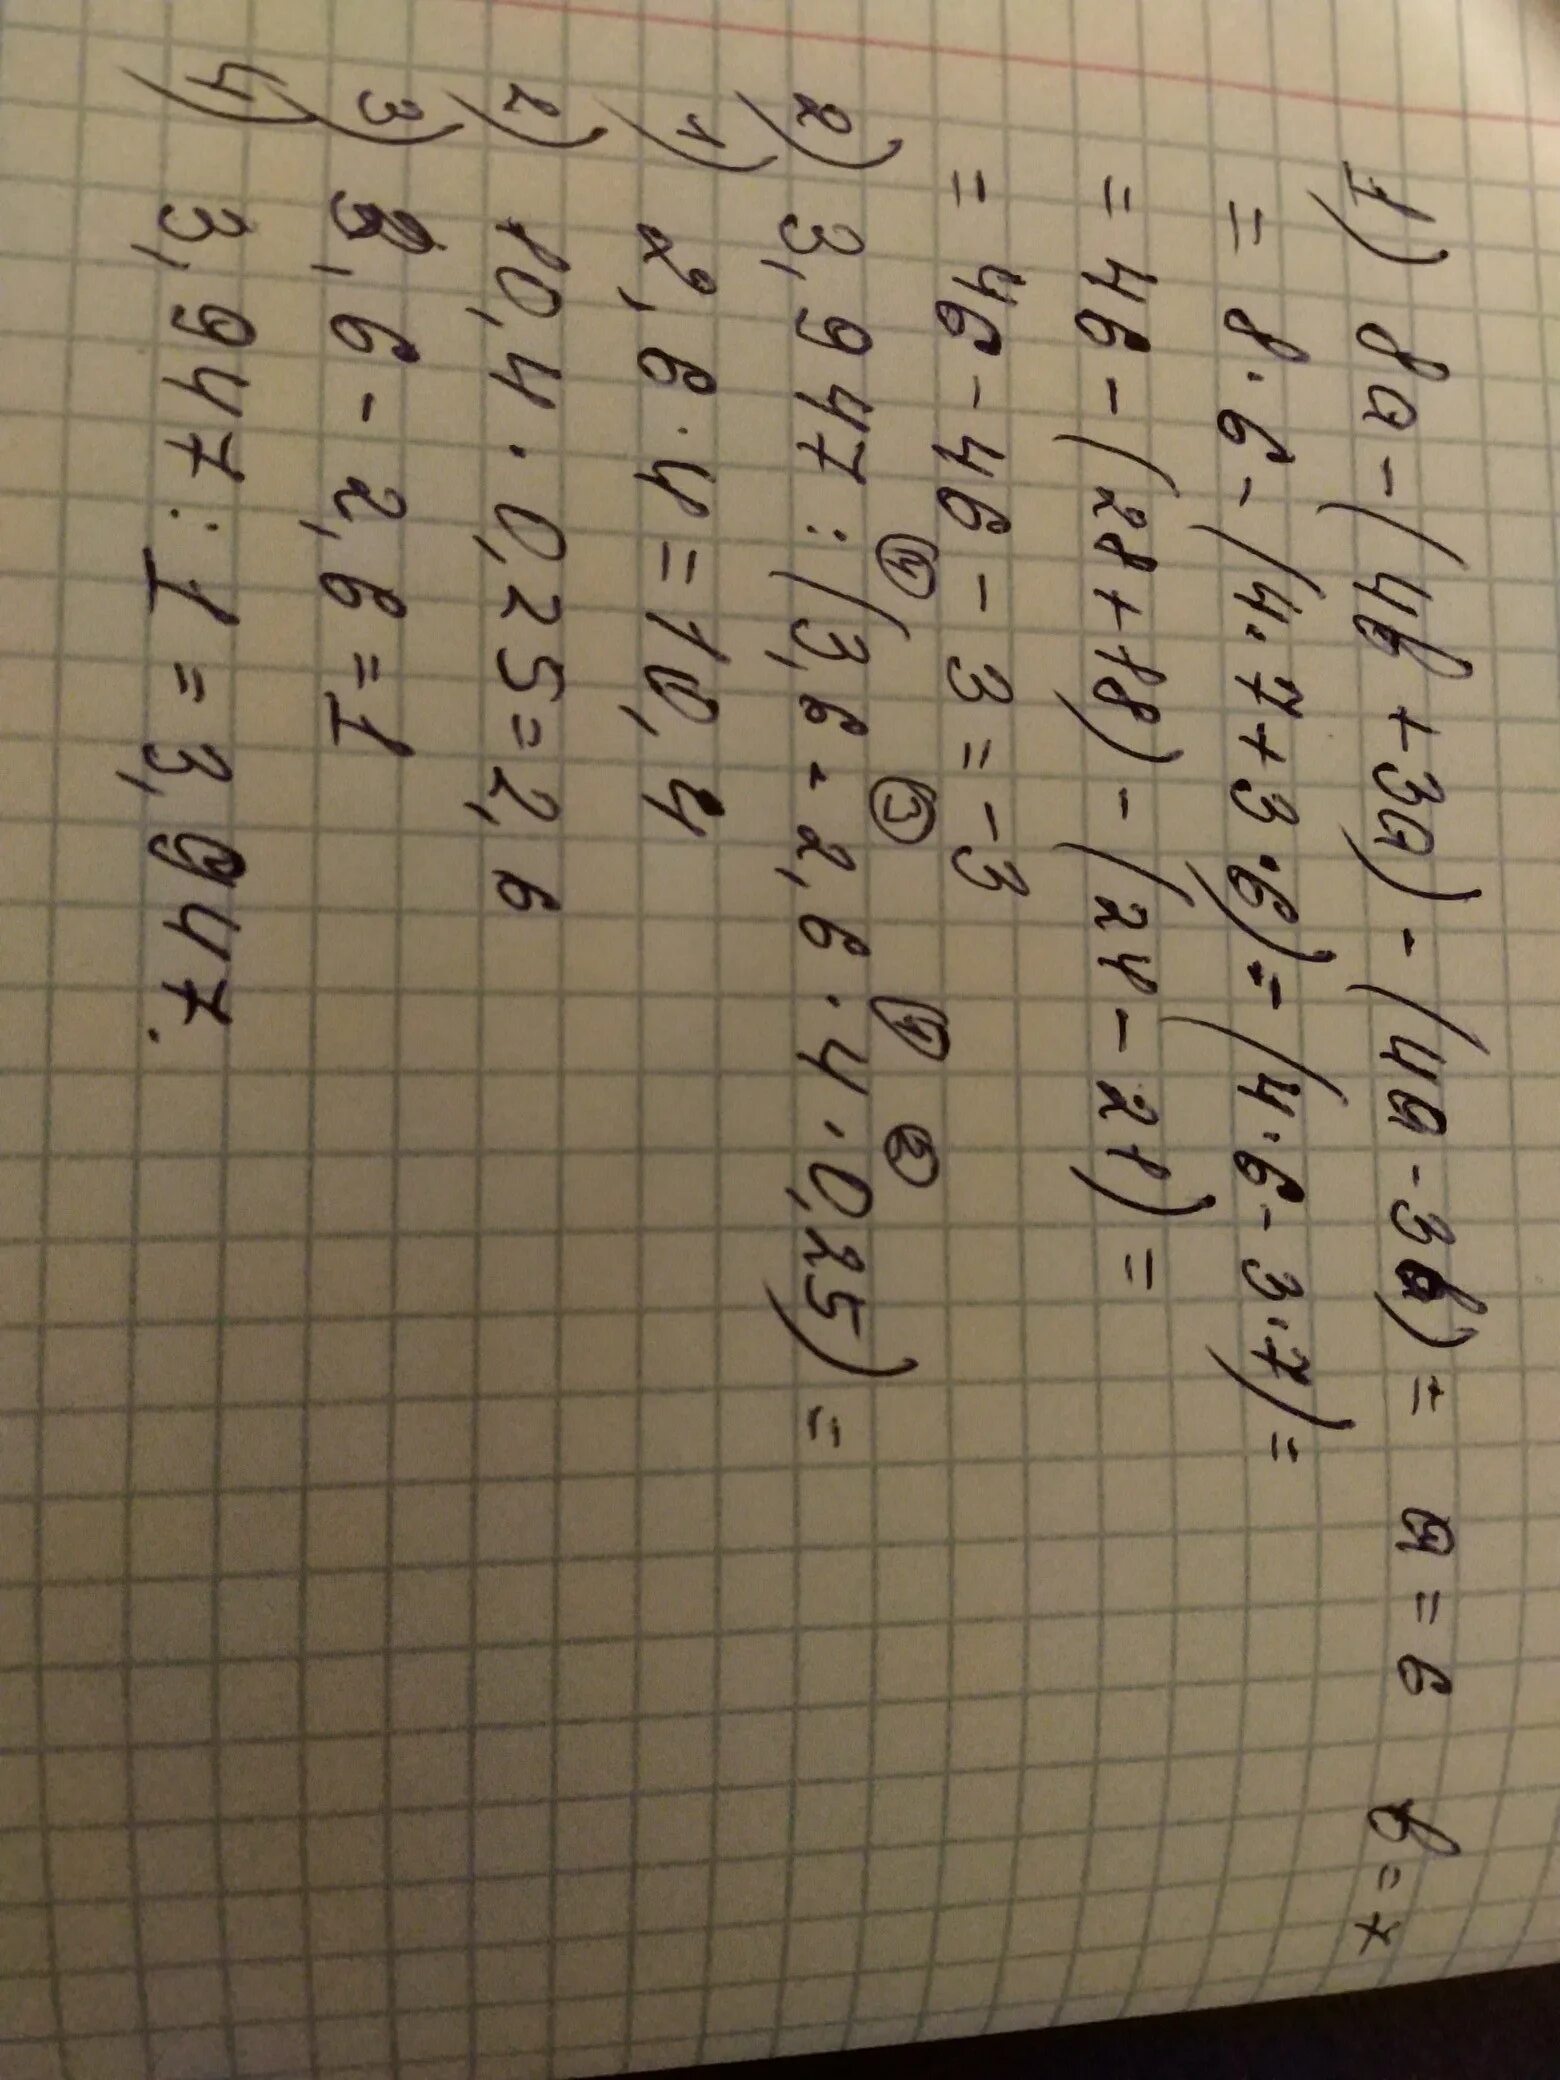 1) 8a - (4b + 3a) - (4a - 3b) = a = 6 b = 7
= 8·6 - (4·7 + 3·6) - (4·6 - 3·7) =
= 46 - (28 + 18) - (24 - 21) =
= 46 - 46 - 3 = -3
④ ③ ① ②
2) 3,947 : (3,6 - 2,6 · 4 · 0,25) =
1) 2,6 · 4 = 10,4
2) 10,4 · 0,25 = 2,6
3) 3,6 - 2,6 = 1
4) 3,947 : 1 = 3,947.